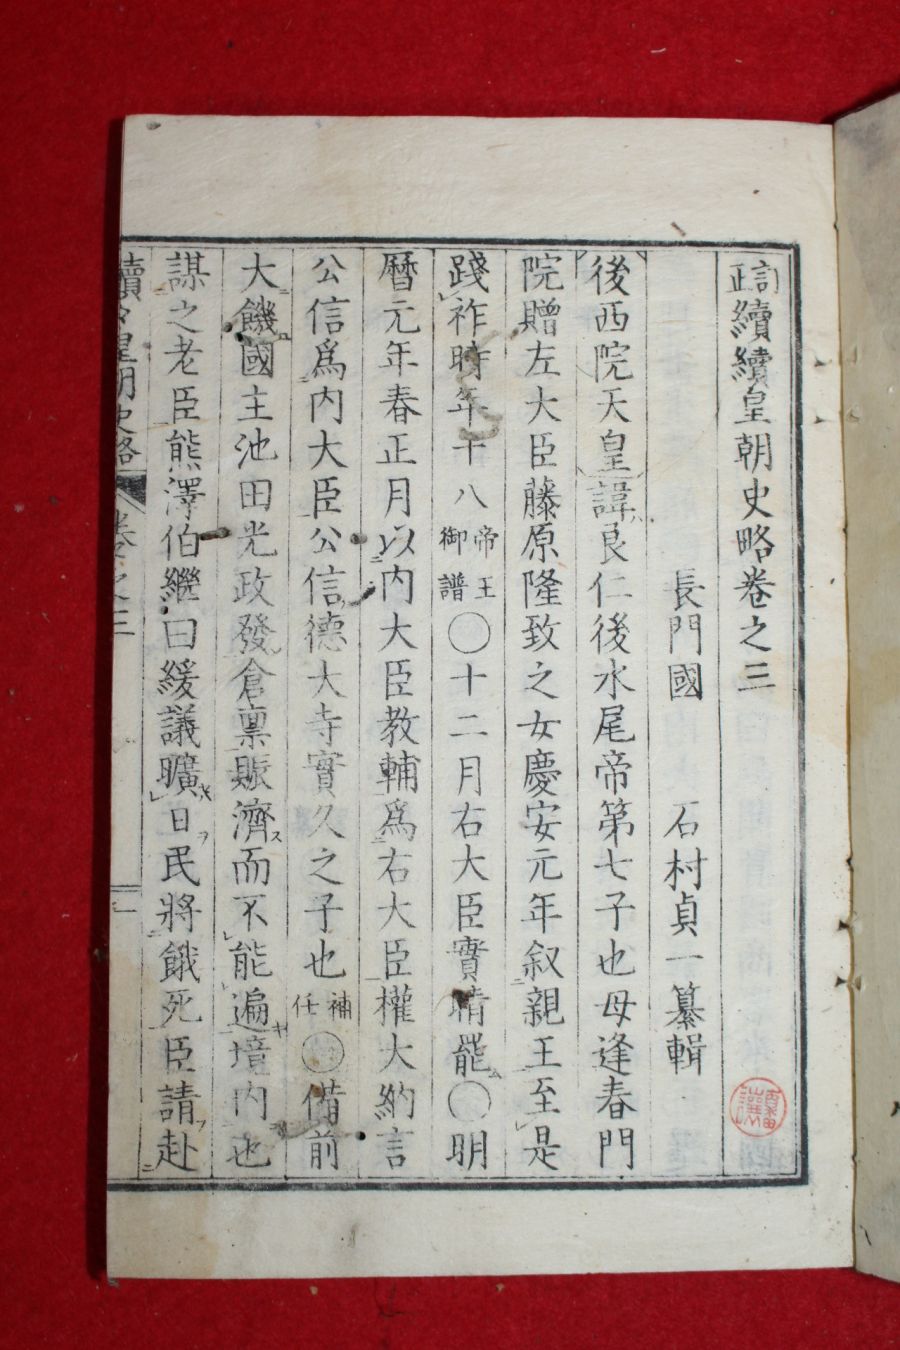 訂正續續皇朝史略卷之三
長門國　石村貞一纂輯
後西院天皇諱良仁後水尾帝第七子也母逢春門
院贈左大臣藤原隆致之女慶安元年叙親王至是
踐祚時年十八帝王御譜〇十二月右大臣實晴罷〇明
曆元年春正月以内大臣教輔爲右大臣權大納言
公信爲内大臣公信德大寺實久之子也補任〇備前
大饑國主池田光政發倉稟賑濟而不能遍境内也
謀之老臣熊澤伯繼曰緩議曠日民將餓死臣請赴
續々皇朝史略　卷之三　一